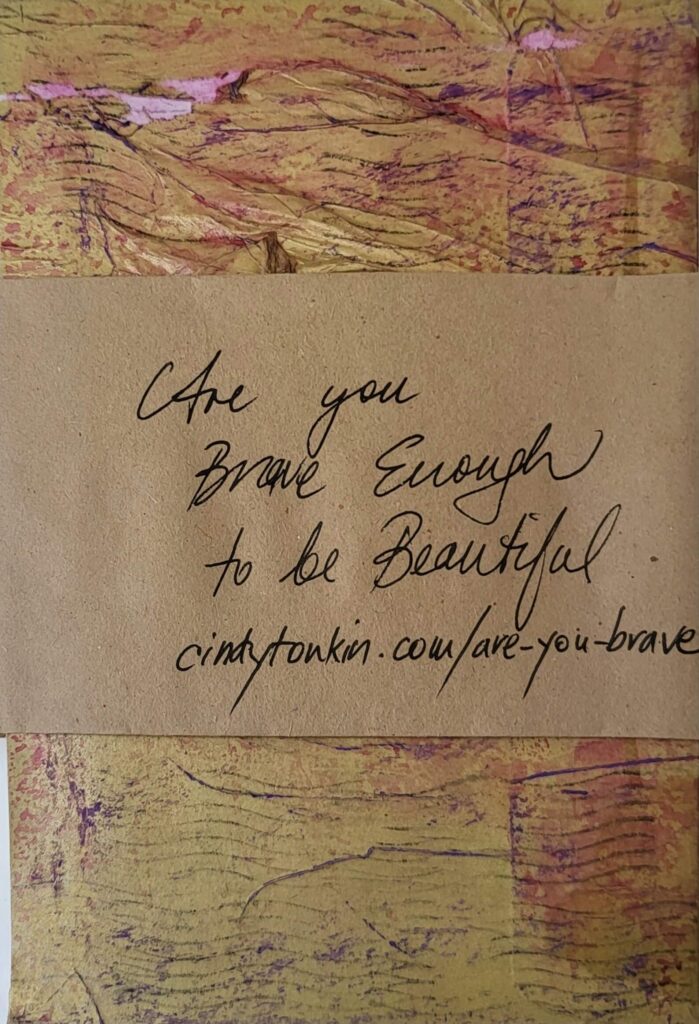 Are you
Brave Enough
to be Beautiful
cindytonkin.com/are-you-brave